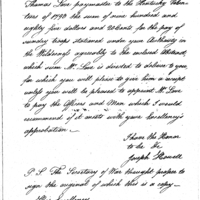 Thomas Love paymaster to the Kentucky Volun-
teers of 1793 the sum of nine hundred and
eighty five dollars and 26 cents for the pay of
sundry troops stationed under your authority in
the Wilderness agreeably to the enclosed Abstract,
which sum Mr. Love is directed to deliver to you
for which you will please to give him a receipt
unless you will be pleased to appoint Mr. Love
to pay the Officers and Men which I would
recommend if it meets with your Excellency's
approbation.
I have the Honor
to be &c.
Joseph Howell
P.S. The Secretary of War thought proper to
sign the original of which this is a copy